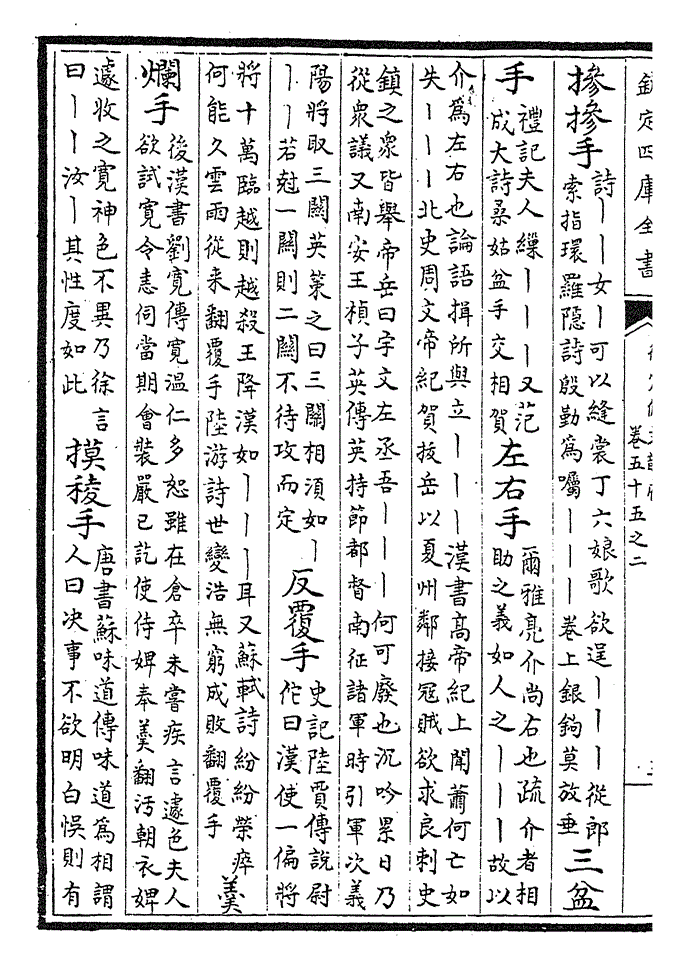 欽定四庫全書
卷五十五之二
摻摻手
詩｜｜女｜可以縫裳丁六娘歌欲逞｜｜｜從郎
索指環羅隱詩殷勤為囑｜｜｜卷上銀鉤莫放垂
三盆
手
禮記夫人繅｜｜｜又范
成大詩桑姑盆手交相賀
左右手
爾雅亮介尚右也疏介者相
助之義如人之｜｜｜故以
介為左右也論語揖所與立｜｜｜漢書高帝紀上聞蕭何亡如
失｜｜｜北史周文帝紀賀拔岳以夏州鄰接冦賊欲求良刺史
鎮之衆皆舉帝岳曰宇文左丞吾｜｜｜何可廢也沉吟累日乃
從衆議又南安王楨子英傳英持節都督南征諸軍時引軍次義
陽將取三關英策之曰三關相須如｜
｜｜若尅一關則二關不待攻而定
反覆手
史記陸賈傳說尉
佗曰漢使一偏將
將十萬臨越則越殺王降漢如｜｜｜耳又蘇軾詩紛紛榮瘁
何能久雲雨從来翻覆手陸游詩世變浩無窮成敗翻覆手
羮
爛手
後漢書劉寛傳寛温仁多恕雖在倉卒未嘗疾言遽色夫人
欲試寛令恚伺當期會裝嚴已訖使侍婢奉羮翻汚朝衣婢
遽收之寛神色不異乃徐言
曰｜｜汝｜其性度如此
摸稜手
唐書蘇味道傳味道為相謂
人曰决事不欲明白悞則有